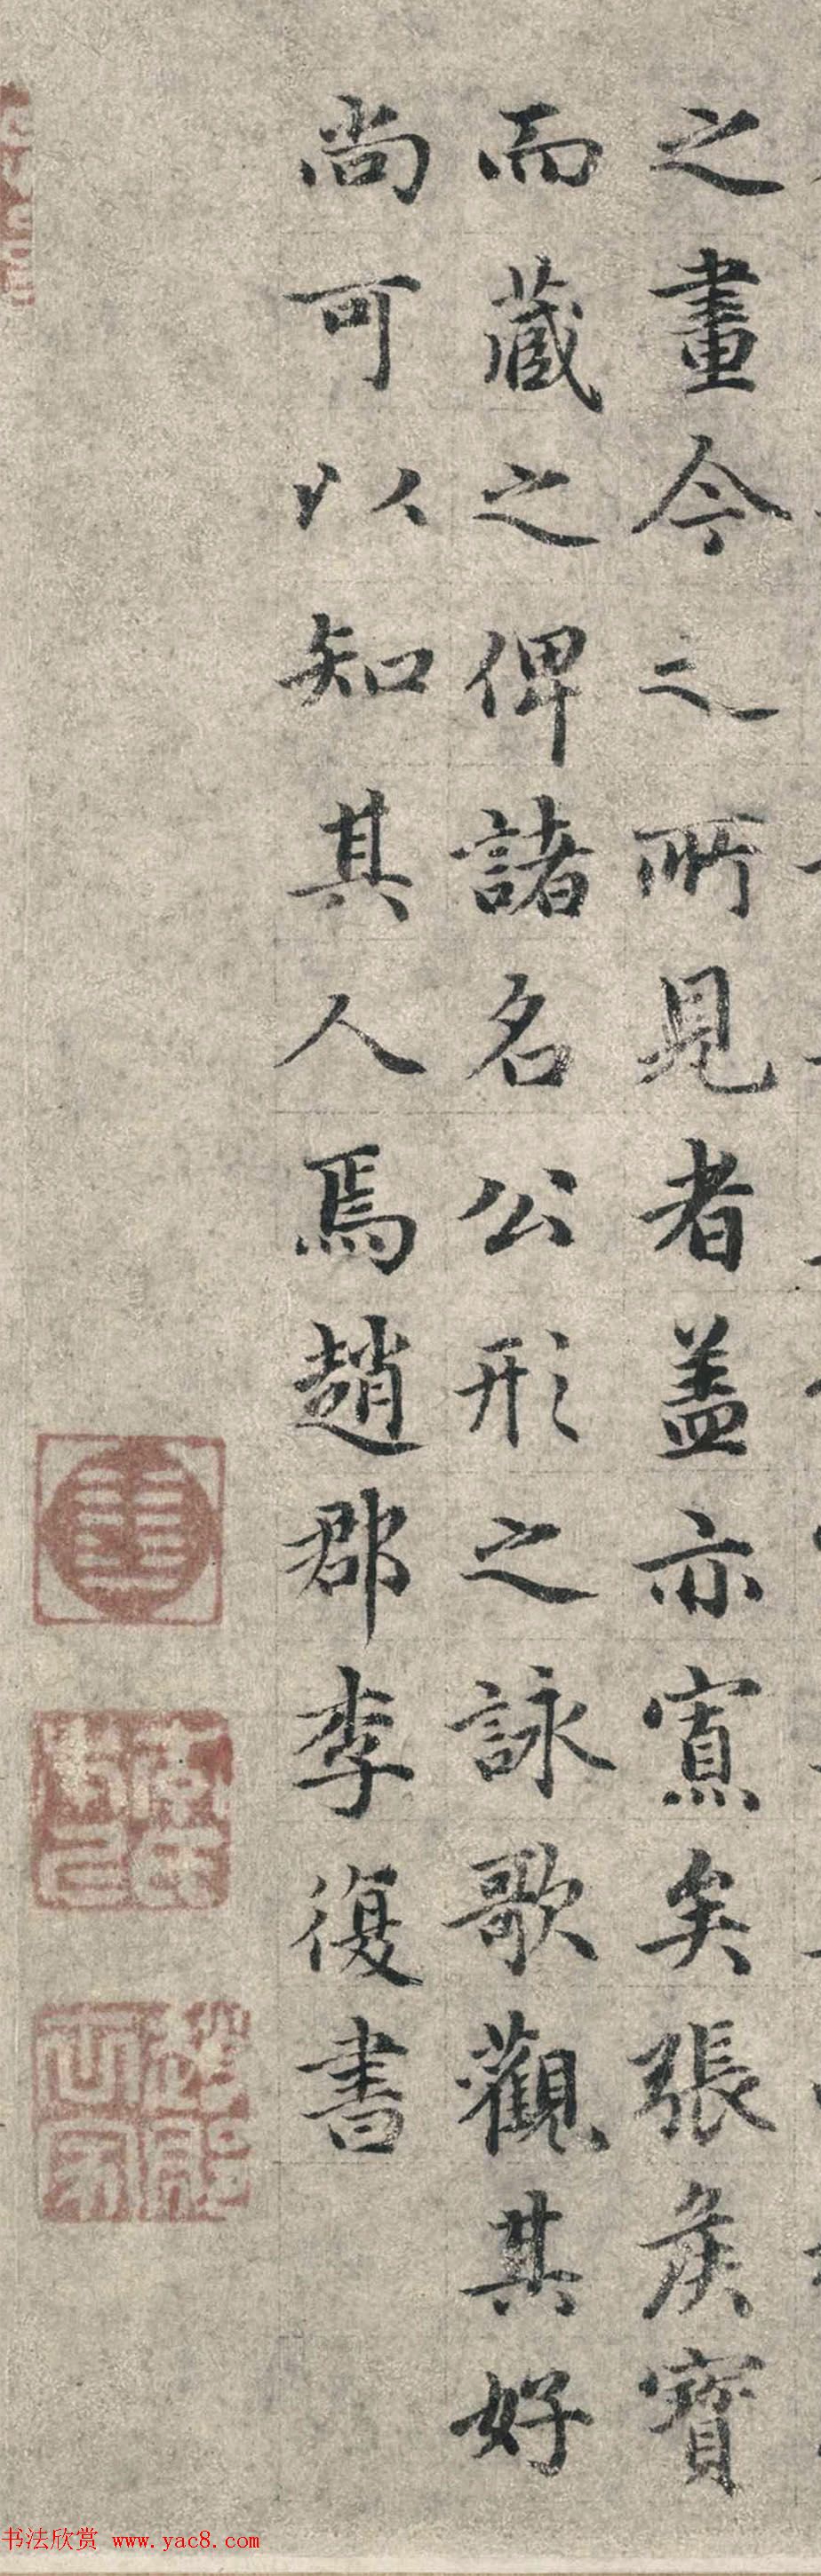 之畫今之所見者盖亦寡矣張侯寳
而藏之俾諸名公形之詠歌觀其好
尚可以知其人焉趙郡李復書
书法欣赏 www.yac8.com